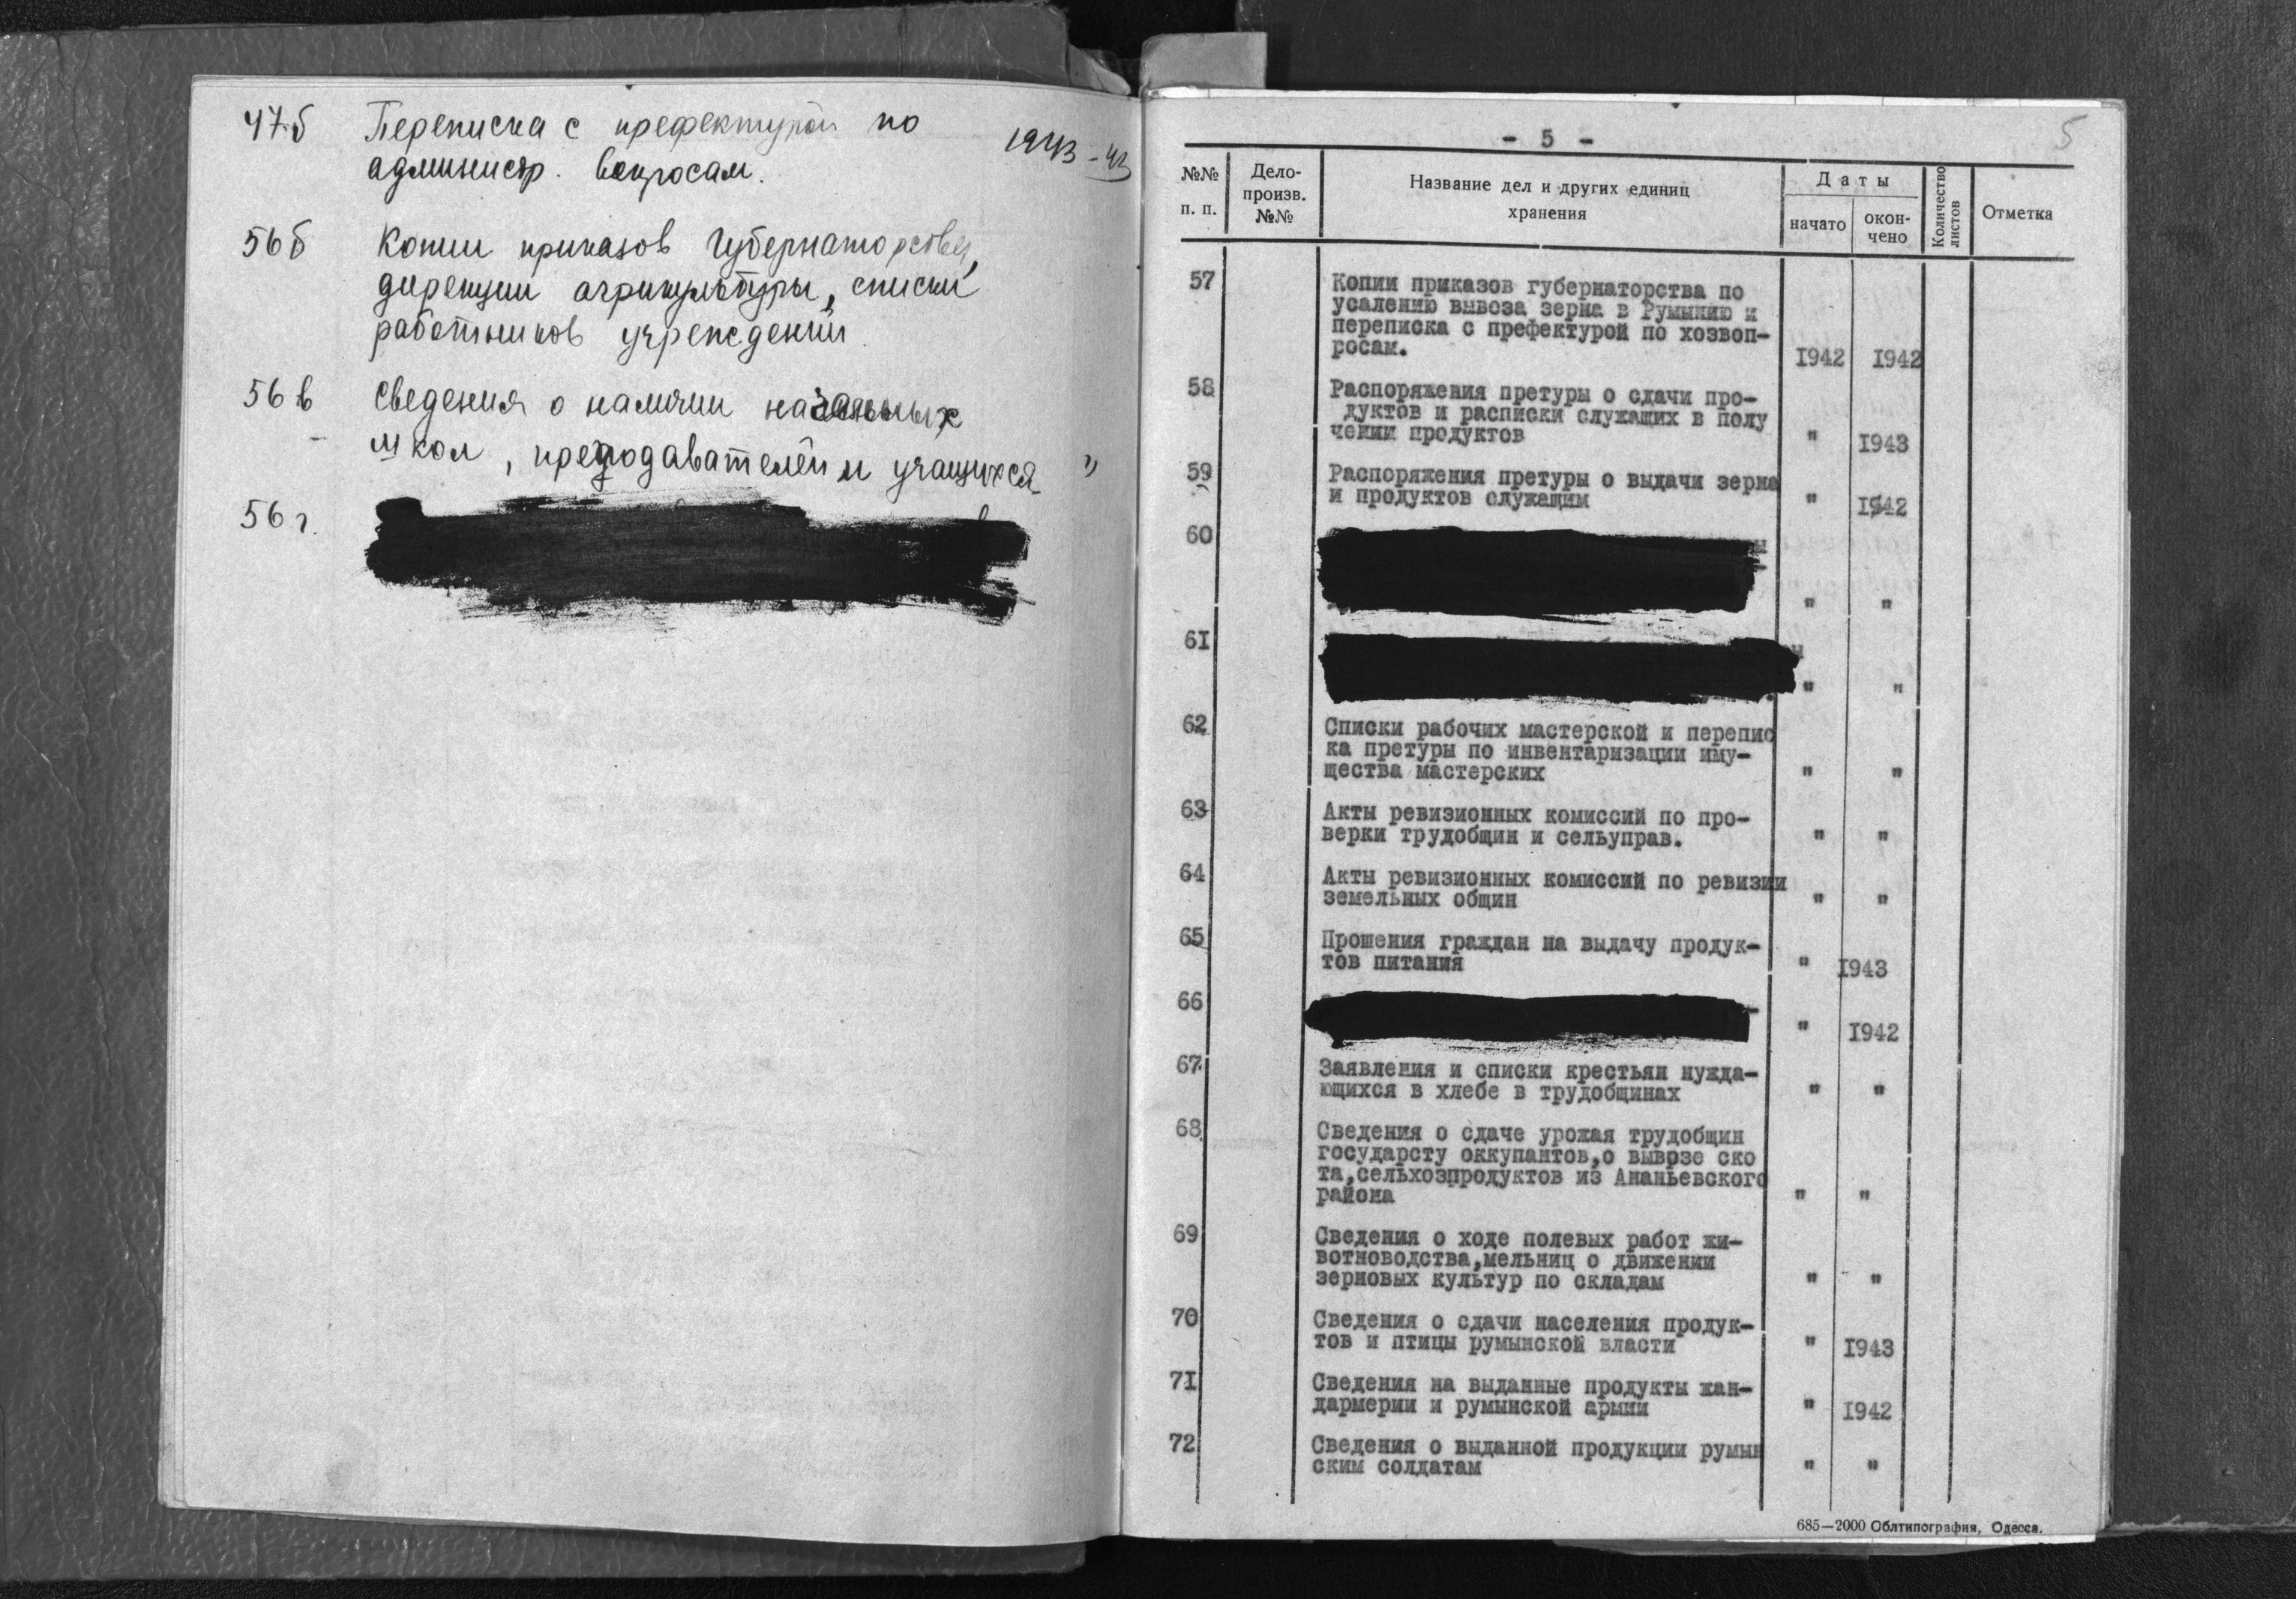 47б Переписка с префектурой по
админістр. вопросам. 1943-43
56б Копии приказов Губернаторства,
дирекции агрикультуры, списки
работников учреждений
56в Сведения о наличии начальных
школ, преподавателей и учащихся "
56г.
- 5 -
5
№№ п. п.
Дело-
произв.
№№
Название дел и других единиц
хранения
Даты
начато
окон-
чено
Количество
листов
Отметка
57 Копии приказов губернаторства по
усалению вывоза зерна в Румынию и
переписка с префектурой по хозвоп-
росам. 1942 1942
58 Распоряжения претуры о сдачи про-
дуктов и расписки служащих в полу
чении продуктов " 1943
59 Распоряжения претуры о выдачи зерна
и продуктов служащим " 1942
60
" "
61
" "
62 Списки рабочих мастерской и перепис
ка претуры по инвентаризации иму-
щества мастерских " "
63 Акты ревизионных комиссий по про-
верки трудобщин и сельуправ. " "
64 Акты ревизионных комиссий по ревизии
земельных общин " "
65 Прошения граждан на выдачу продук-
тов питания " 1943
66
" 1942
67 Заявления и списки крестьян нужда-
ющихся в хлебе в трудобщинах " "
68 Сведения о сдаче урожая трудобщин
государсту оккупантов,о вывозе ско
та,сельхозпродуктов из Ананьевского
района " "
69 Сведения о ходе полевых работ жи-
вотноводства,мельниц о движении
зерновых культур по складам " "
70 Сведения о сдачи населения продук-
тов и птицы румынской власти " 1943
71 Сведения на выданные продукты жан-
дармерии и румынской армии " 1942
72 Сведения о выданной продукции румын
ским солдатам " "
685—2000 Облтипография, Одесса.